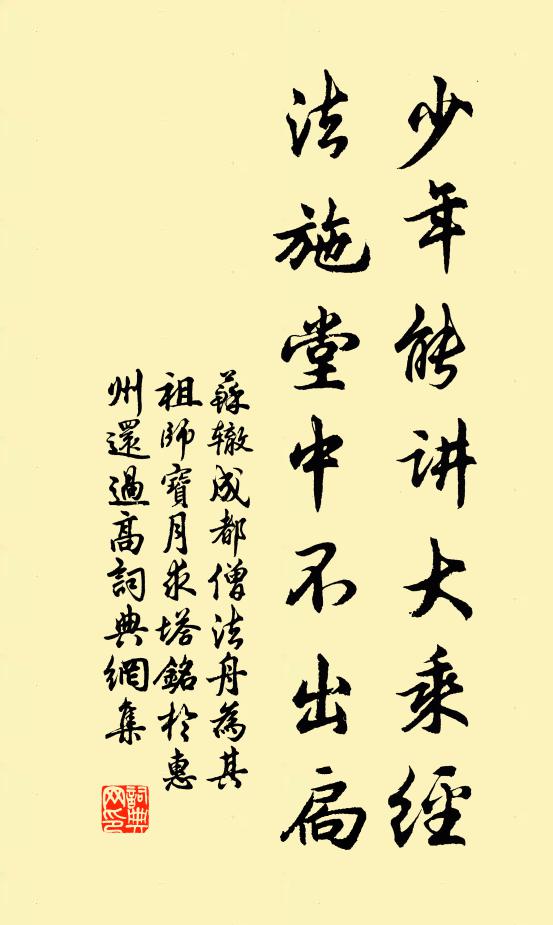 少年能讲大乘經
法施堂中不出扃
蘇辙成都僧法舟為其
祖师寶月求塔銘於惠
州還過高詞典網集
詞典
网印